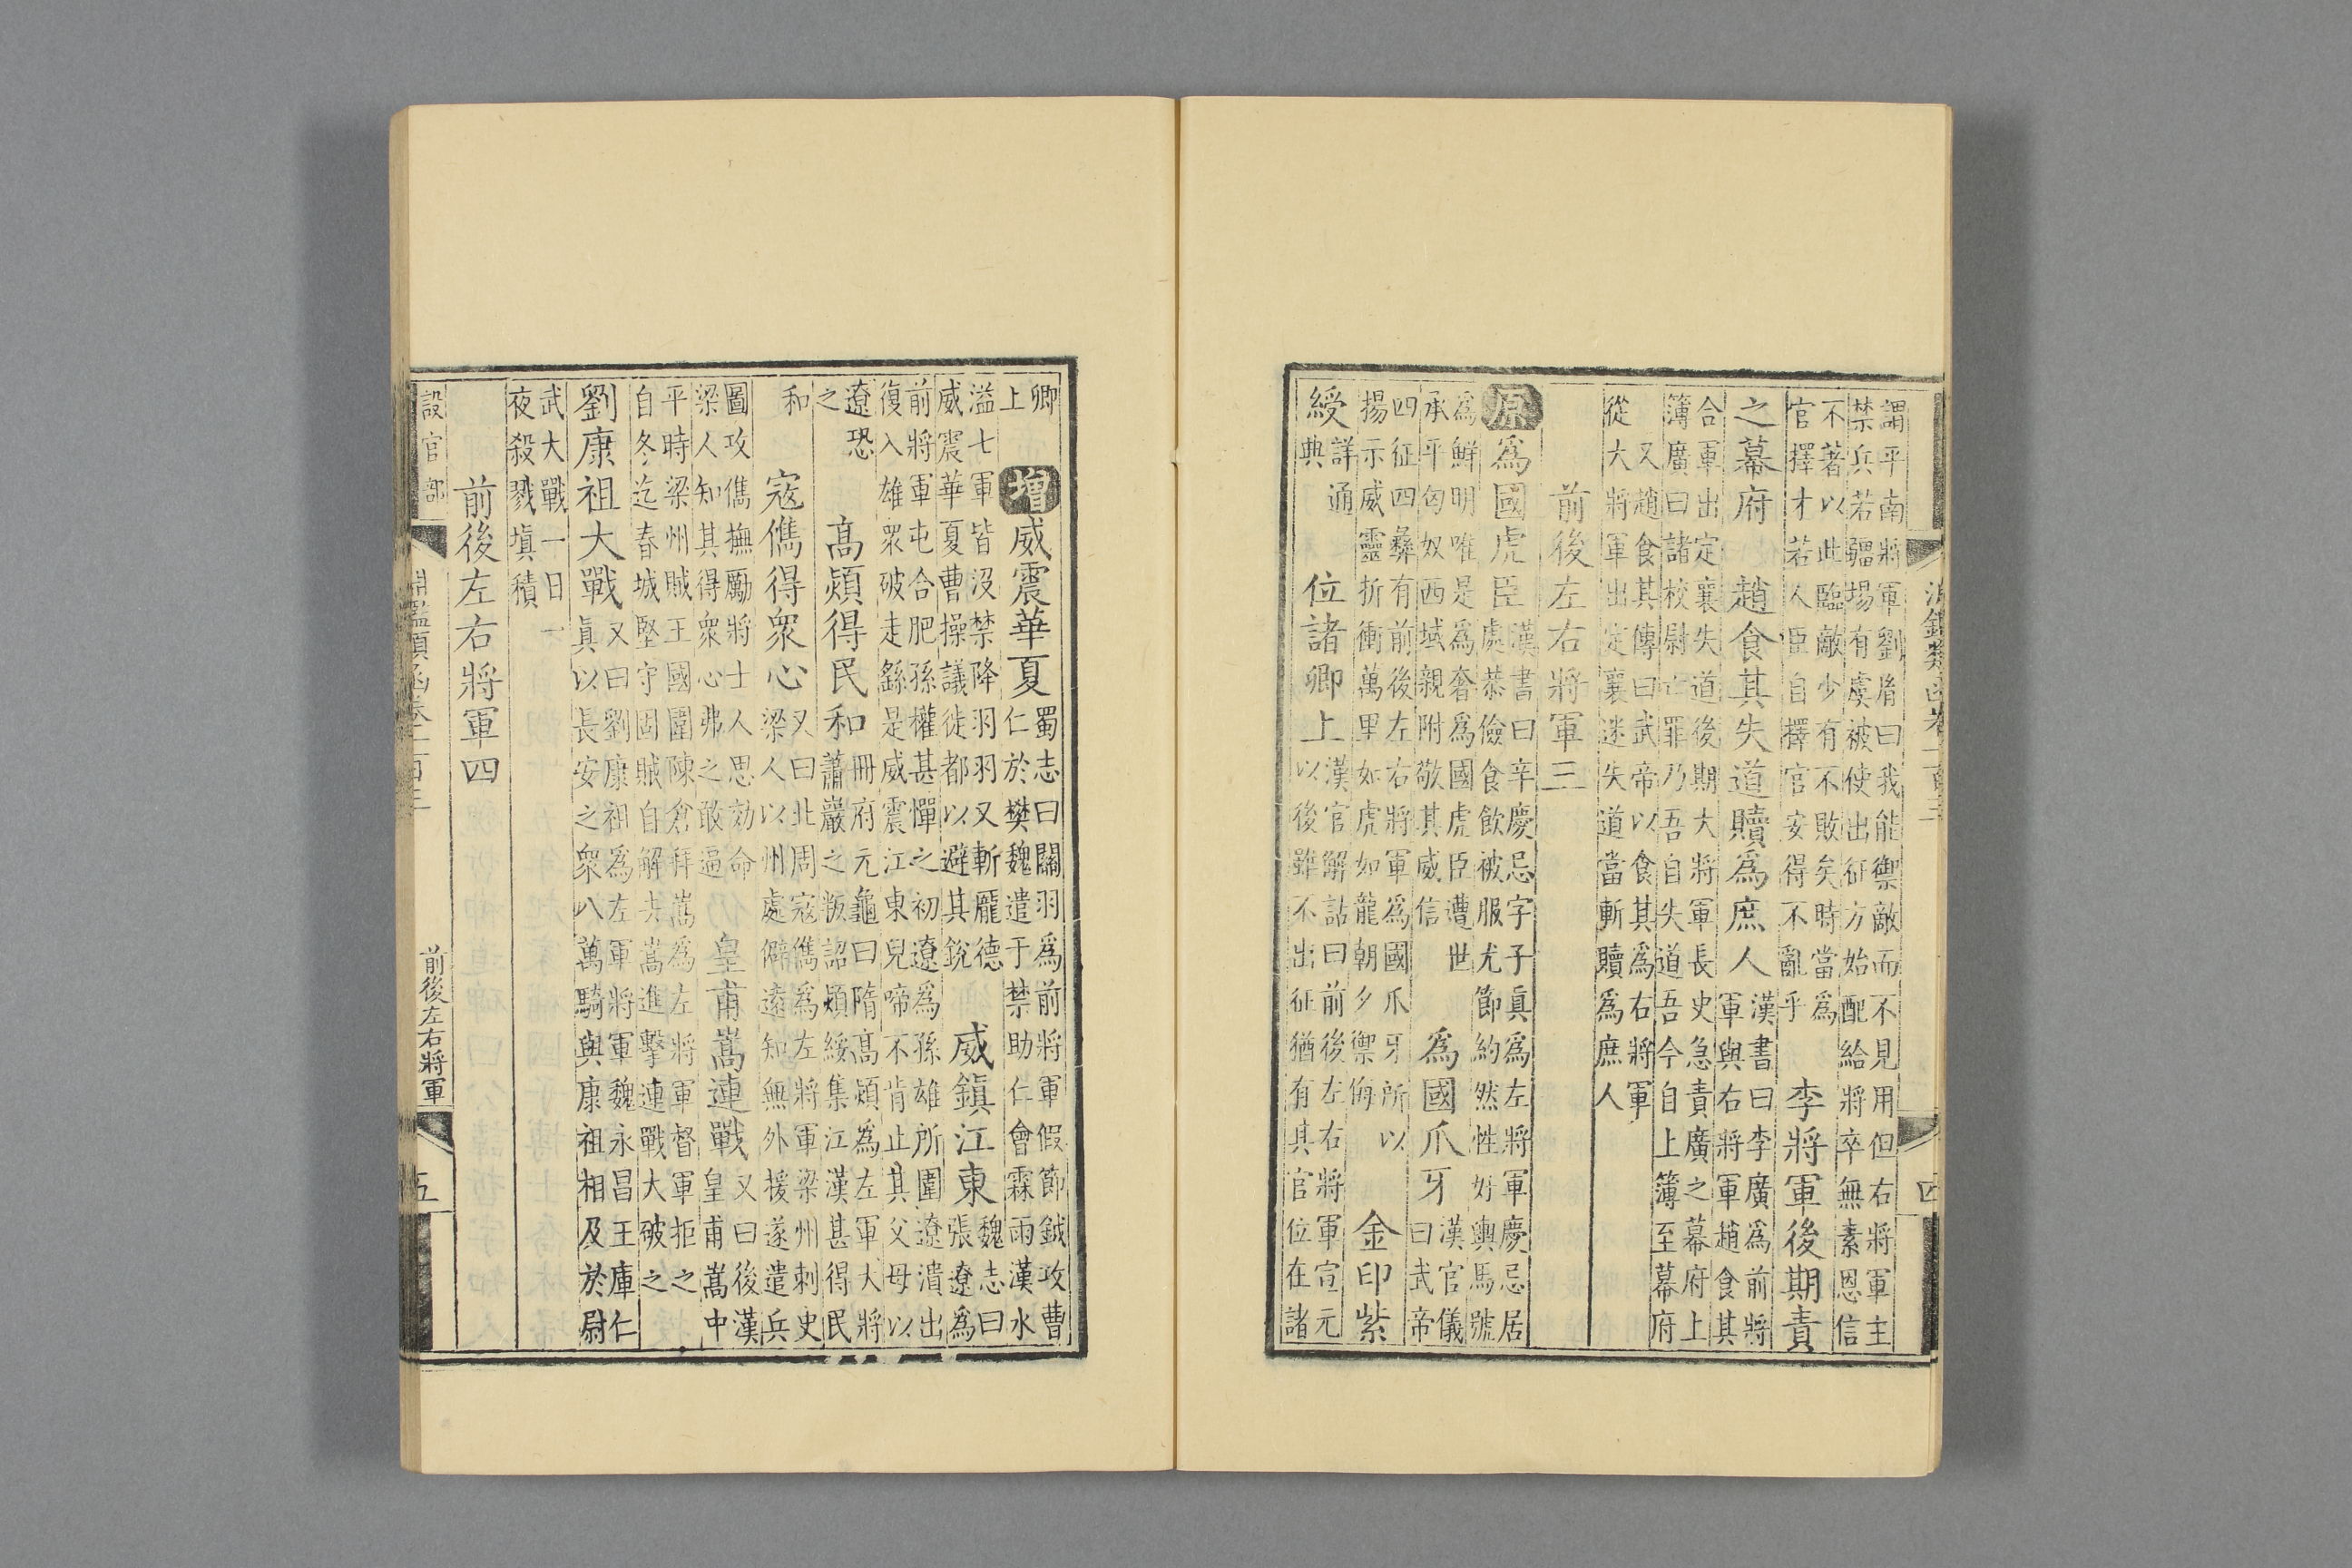 謂平南將軍劉胤曰我能禦敵而不見用但右將軍主
禁兵若疆場有虞被使出征方始配給將卒無素恩信
不著以此臨敵少有不敗矣時當爲
官擇才若人臣自擇官安得不亂乎
李將軍後期責
之幕府　趙食其失道贖爲庶人
漢書曰李廣爲前將
軍與右將軍趙食其
合軍出定襄失道後期大將軍長史急責廣之幕府上
簿廣曰諸校尉亡罪乃吾自失道吾今自上簿至幕府
又趙食其傳曰武帝以食其爲右將軍
從大將軍出定襄迷失道當斬贖爲庶人
前後左右將軍三
原爲國虎臣
漢書曰辛慶忌字子眞爲左將軍慶忌居
處恭儉食飲被服尤節約然性好輿馬號
爲鮮明唯是爲奢爲國虎臣遭世
承平匈奴西域親附敬其威信
爲國爪牙
漢官儀
曰武帝
四征四彝有前後左右將軍爲國爪牙所以
揚示威靈折衝萬里如虎如龍朝夕禦侮
金印紫
綬
詳通
典
位諸卿上
漢官解詁曰前後左右將軍宣元
以後雖不出征猶有其官位在諸
卿
上
增威震華夏
蜀志曰關羽爲前將軍假節鉞攻曹
仁於樊魏遣于禁助仁會霖雨漢水
溢七軍皆沒禁降羽羽又斬龐德
威震華夏曹操議徙都以避其銳
威鎭江東
魏志曰
張遼爲
前將軍屯合肥孫權甚憚之初遼爲孫雄所圍遼潰出
復入雄衆破走繇是威震江東兒啼不肯止其父母以
遼恐
之
高熲得民和
冊府元龜曰隋高熲爲左軍大將
蕭巖之叛詔熲綏集江漢甚得民
和
寇儁得衆心
又曰北周寇儁爲左將軍梁州刺史
梁人以州處僻遠知無外援遂遣兵
圖攻儁撫厲將士人思効命
梁人知其得衆心弗之敢逼
皇甫嵩連戰
又曰後漢
皇甫嵩中
平時梁州賊王國圍陳倉拜嵩爲左將軍督軍拒之
自冬迄春城堅守固賊自解去嵩進擊連戰大破之
劉康祖大戰
又曰劉康祖爲左軍將軍魏永昌王庫仁
眞以長安之衆八萬騎與康祖相及於尉
武大戰一日一
夜殺戮塡積
前後左右將軍四
設官部
淵鑑類函卷一百三
前後左右將軍
五